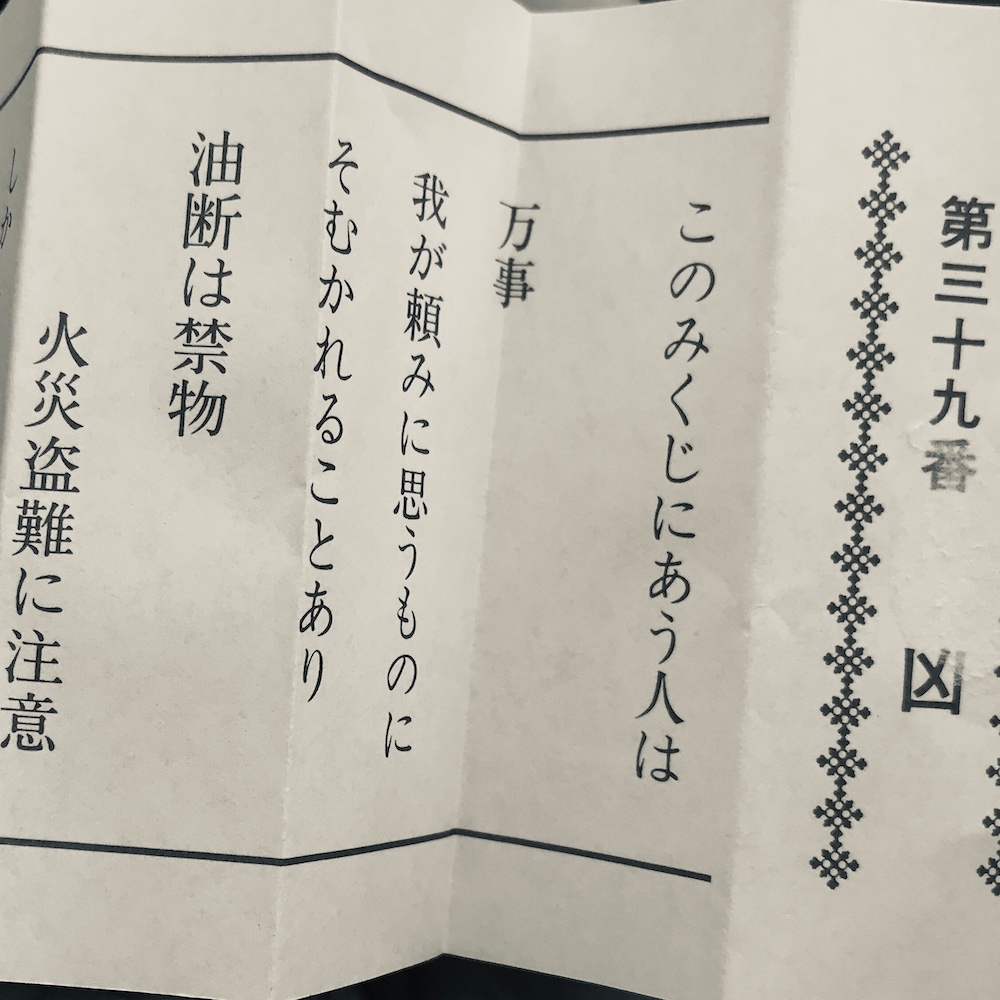 第三十九番
凶
このみくじにあう人は
万事
我が頼みに思うものに
そむかれることあり
油断は禁物
火災盗難に注意
しか